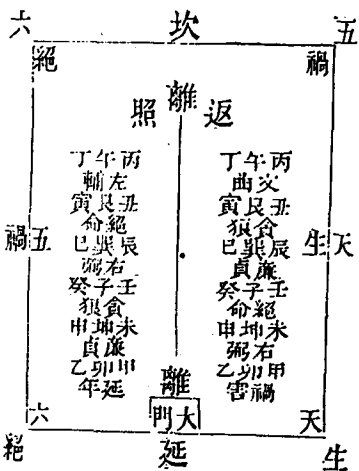 五 坎 六
禍 絕
返 離 照
丙午丁
文曲
丑艮寅
貪狼
辰巽巳
廉貞
壬子癸
絕命
未坤申
右弼
甲卯乙
禍害
丙午丁
左輔
丑艮寅
絕命
辰巽巳
右弼
壬子癸
貪狼
未坤申
廉貞
甲卯乙
延年
天生
五禍
離
大門
天 六
生 延 絕